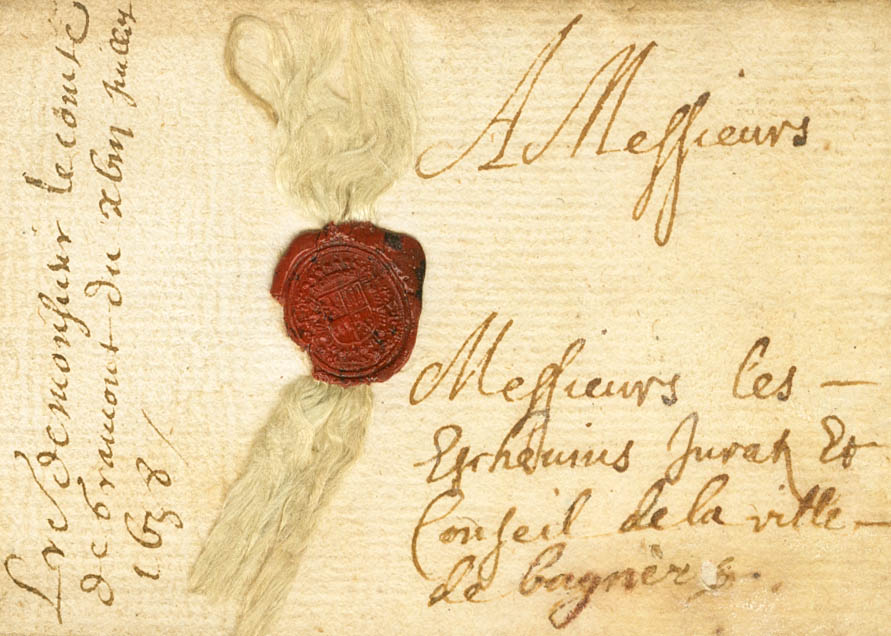 A Messieurs
Messieurs les
Eschevins Jurats Et
Conseil de la ville
de bagnères
Lre de monsieur le comte
de gramont du xbiii juillet
1638